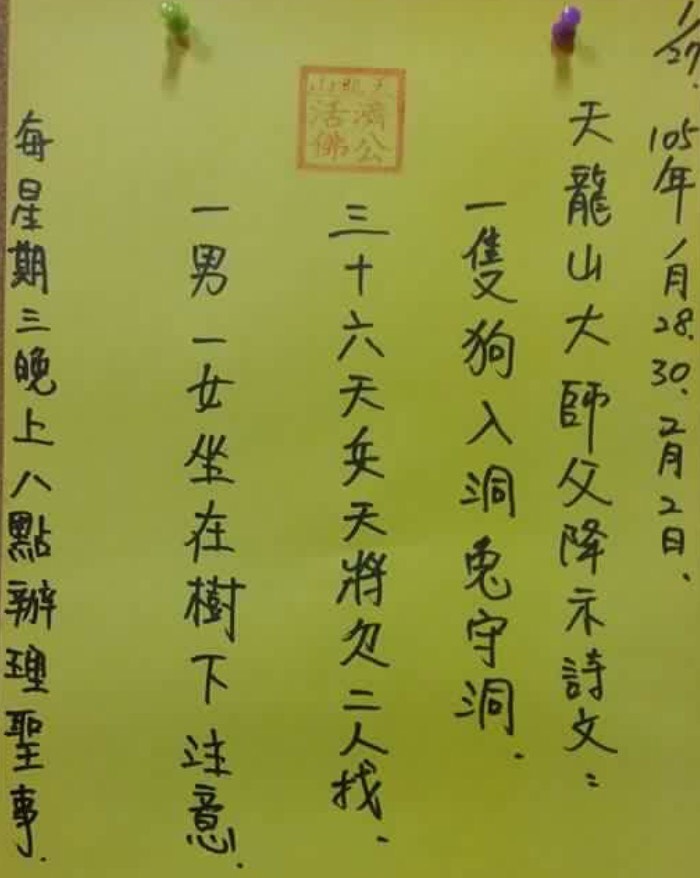 1/27.
105年1月28.30.2月2日.
天龍山大師父降示詩文：
一隻狗入洞兔守洞.
三十六天兵天將欠二人找.
天龍山
濟公
活佛
一男一女坐在樹下注意.
每星期三晚上八點辦理聖事.